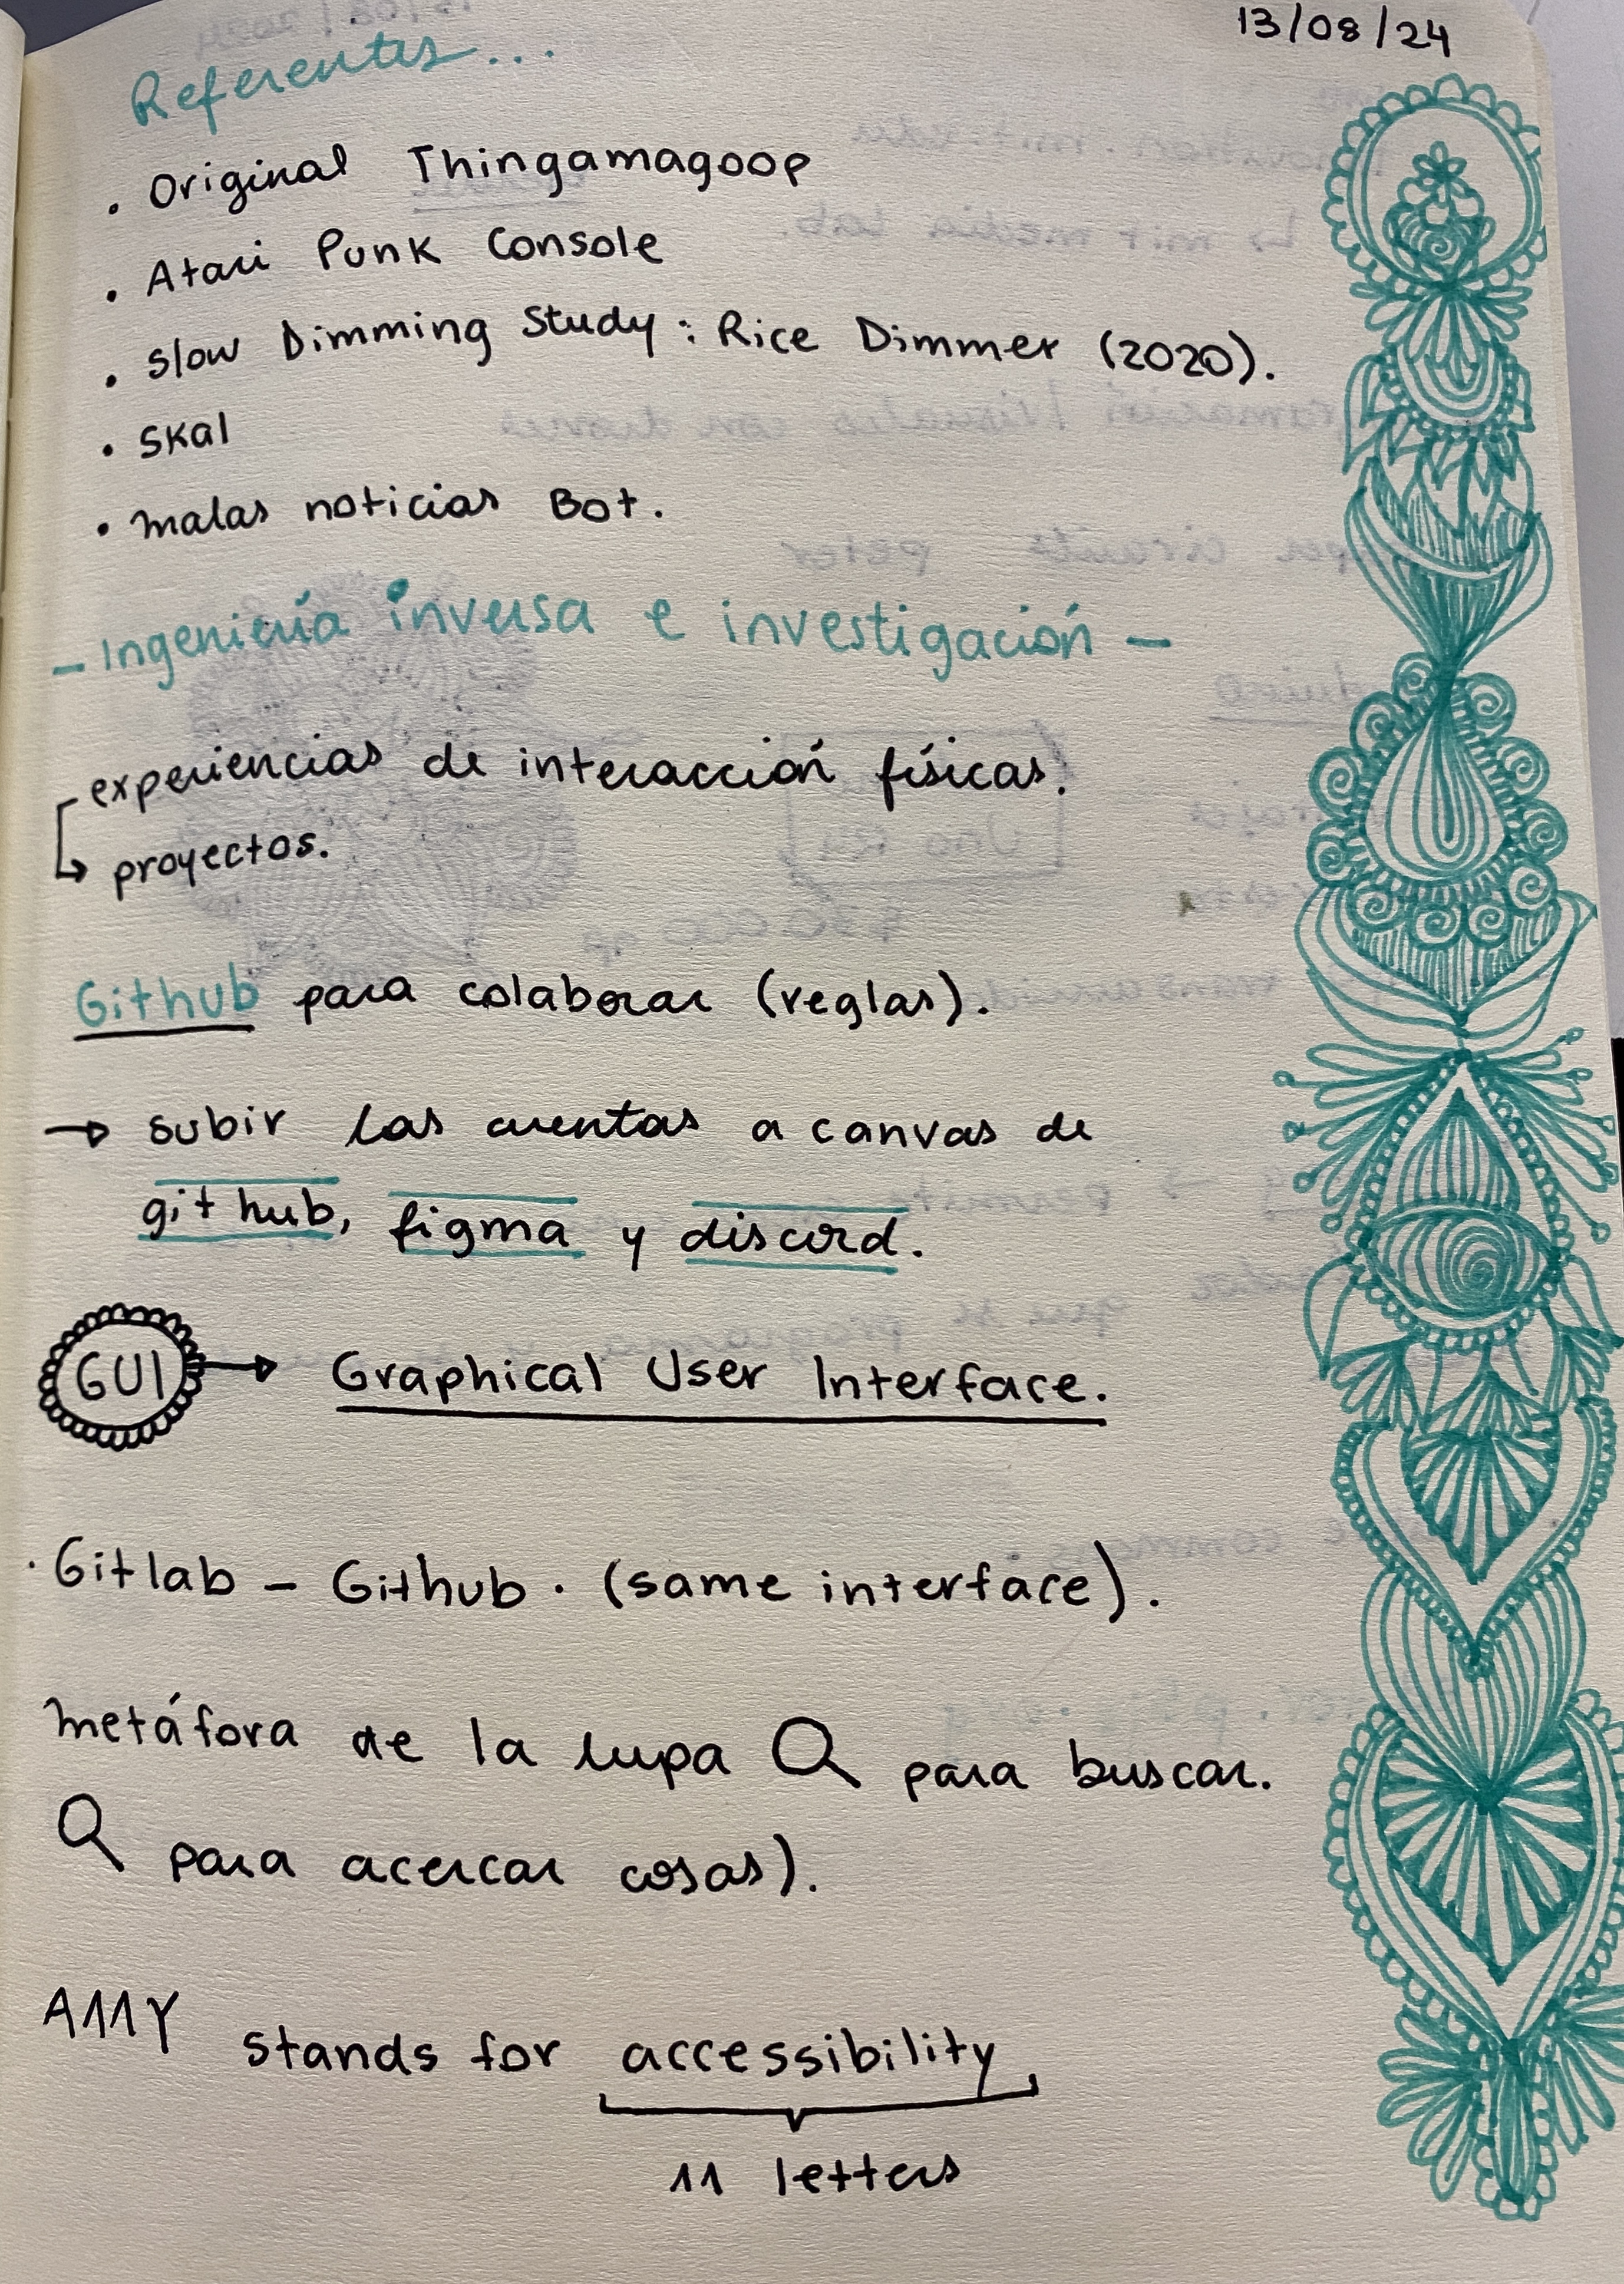 13/08/24
Referentes...
· Original Thingamagoop
· Atari Punk Console
· Slow Dimming Study: Rice Dimmer (2020).
· Skal
· malas noticias Bot.
- Ingeniería inversa e investigación -
experiencias de interacción físicas.
↳ proyectos.
Github para colaborar (reglas).
→ subir las cuentas a canvas de
github, figma y discord.
GUI → Graphical User Interface.
· Gitlab - Github · (same interface).
metáfora de la lupa 🔍 para buscar.
🔍 para acercar cosas).
A11Y stands for accessibility
11 letters